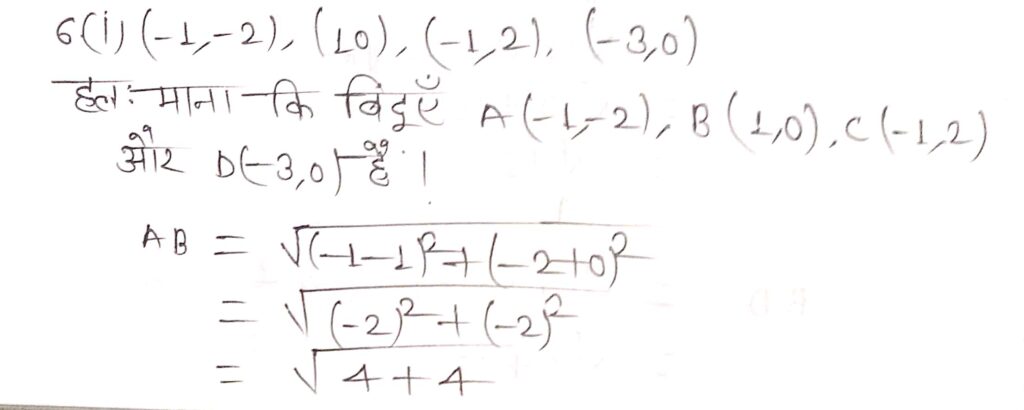 6(i) (-1,-2), (10), (-1,2), (-3,0)
हल: माना कि बिंदुएँ A(-1,-2), B(1,0), C(-1,2)
और D(-3,0) है।
AB = √(-1-1)²+(-2+0)²
= √(-2)²+(-2)²
= √4+4